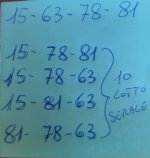 15-63-78-81
15-78-81
15-78-63
15-81-63
81-78-63
10
LOTTO
SERALE